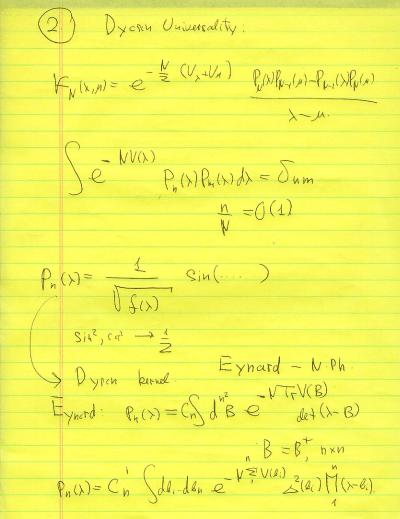 ② Dyson Universality:
K_N(λ,μ) = e^{-N/2 (V_λ+V_μ)} (P_N(λ)P_{N-1}(μ) - P_{N-1}(λ)P_N(μ)) / (λ - μ)
∫ e^{-NV(λ)} P_n(λ) P_m(λ) dλ = δ_{nm}
n/N = O(1)
P_n(λ) = 1/√f(λ) sin(.... )
sin², cos² → 1/2
Dyson kernel. Eynard - N. Ph.
Eynard: P_n(λ) = C_n ∫ d^{n²}B e^{-N Tr V(B)} det(λ - B)
B = B⁺, n×n
P_n(λ) = C'_n ∫ db_1..db_n e^{-N Σ_i V(b_i)} Δ²(b_i) ∏_1^n (λ - b_i)